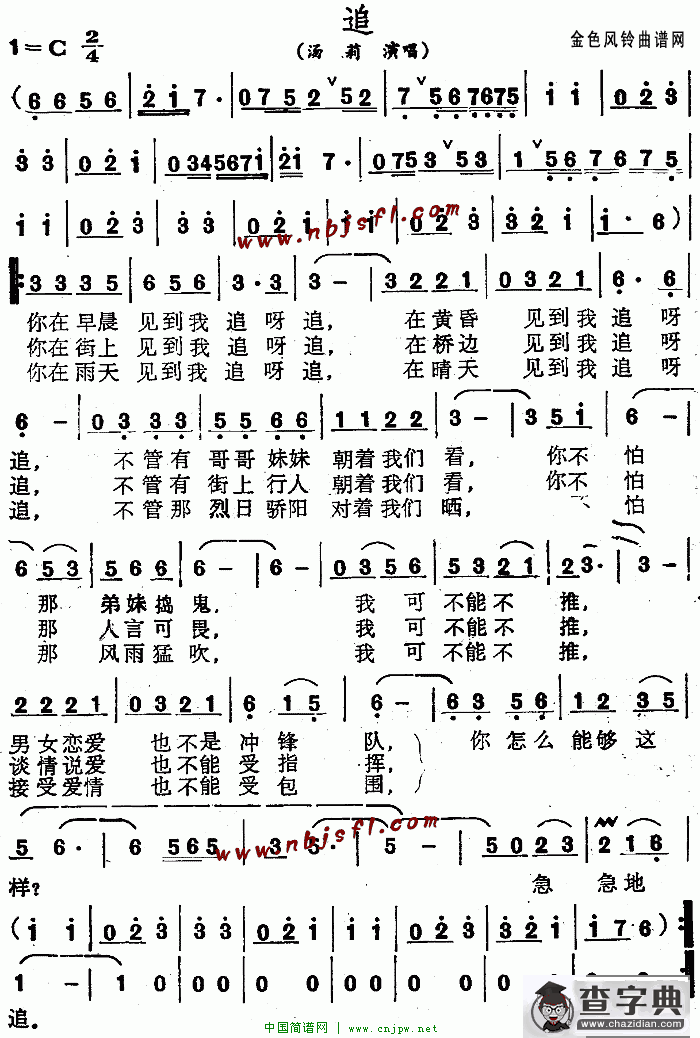 追
1=C 2/4
(汤 莉 演唱)
金色风铃曲谱网
( 6 6 5 6 | 2 i 7 · | 0 7 5 2 ∨ 5 2 | 7 ∨ 5 6 7 6 7 5 | i i | 0 2 3 |
3 3 | 0 2 i | 0 3 4 5 6 7 i | 2 i 7 · | 0 7 5 3 ∨ 5 3 | 1 ∨ 5 6 7 6 7 5 |
i i | 0 2 3 | 3 3 | 0 2 i | i i | 0 2 3 | 3 2 i | i · 6 ) |
www.nbjsfl.com
‖: 3 3 3 5 | 6 5 6 | 3 · 3 | 3 - | 3 2 2 1 | 0 3 2 1 | 6 · 6 |
你在早晨 见到我 追 呀 追, 在黄昏 见到我 追 呀
你在街上 见到我 追 呀 追, 在桥边 见到我 追 呀
你在雨天 见到我 追 呀 追, 在晴天 见到我 追 呀
6 - | 0 3 3 3 | 5 5 6 6 | 1 1 2 2 | 3 - | 3 5 i | 6 - |
追, 不管有 哥哥 妹妹 朝着我们 看, 你不 怕
追, 不管有 街上 行人 朝着我们 看, 你不 怕
追, 不管那 烈日 骄阳 对着我们 晒, 不 怕
6 5 3 | 5 6 6 | 6 - | 6 - | 0 3 5 6 | 5 3 2 1 | 2 3 · | 3 - |
那 弟妹捣鬼, 我 可 不能不 推,
那 人言可畏, 我 可 不能不 推,
那 风雨猛吹, 我 可 不能不 推,
2 2 2 1 | 0 3 2 1 | 6 1 5 | 6 - | 6 3 5 6 | 1 2 3 5 |
男女恋爱 也不是 冲 锋 队, 你 怎么 能够 这
谈情说爱 也不能 受 指 挥,
接受爱情 也不能 受 包 围,
www.nbjsfl.com
5 6 · | 6 5 6 5 | 3 5 · | 5 - | 5 0 2 3 | 2 1 6 |
样? 急 急地
( i i | 0 2 3 | 3 3 | 0 2 i | i i | 0 2 3 | 3 2 i | i 7 6 ) :‖
1 - | 1 0 | 0 0 | 0 0 | 0 0 | 0 0 | 0 0
追。
中国简谱网 | www.cnjpw.net
查字典
www.chazidian.com